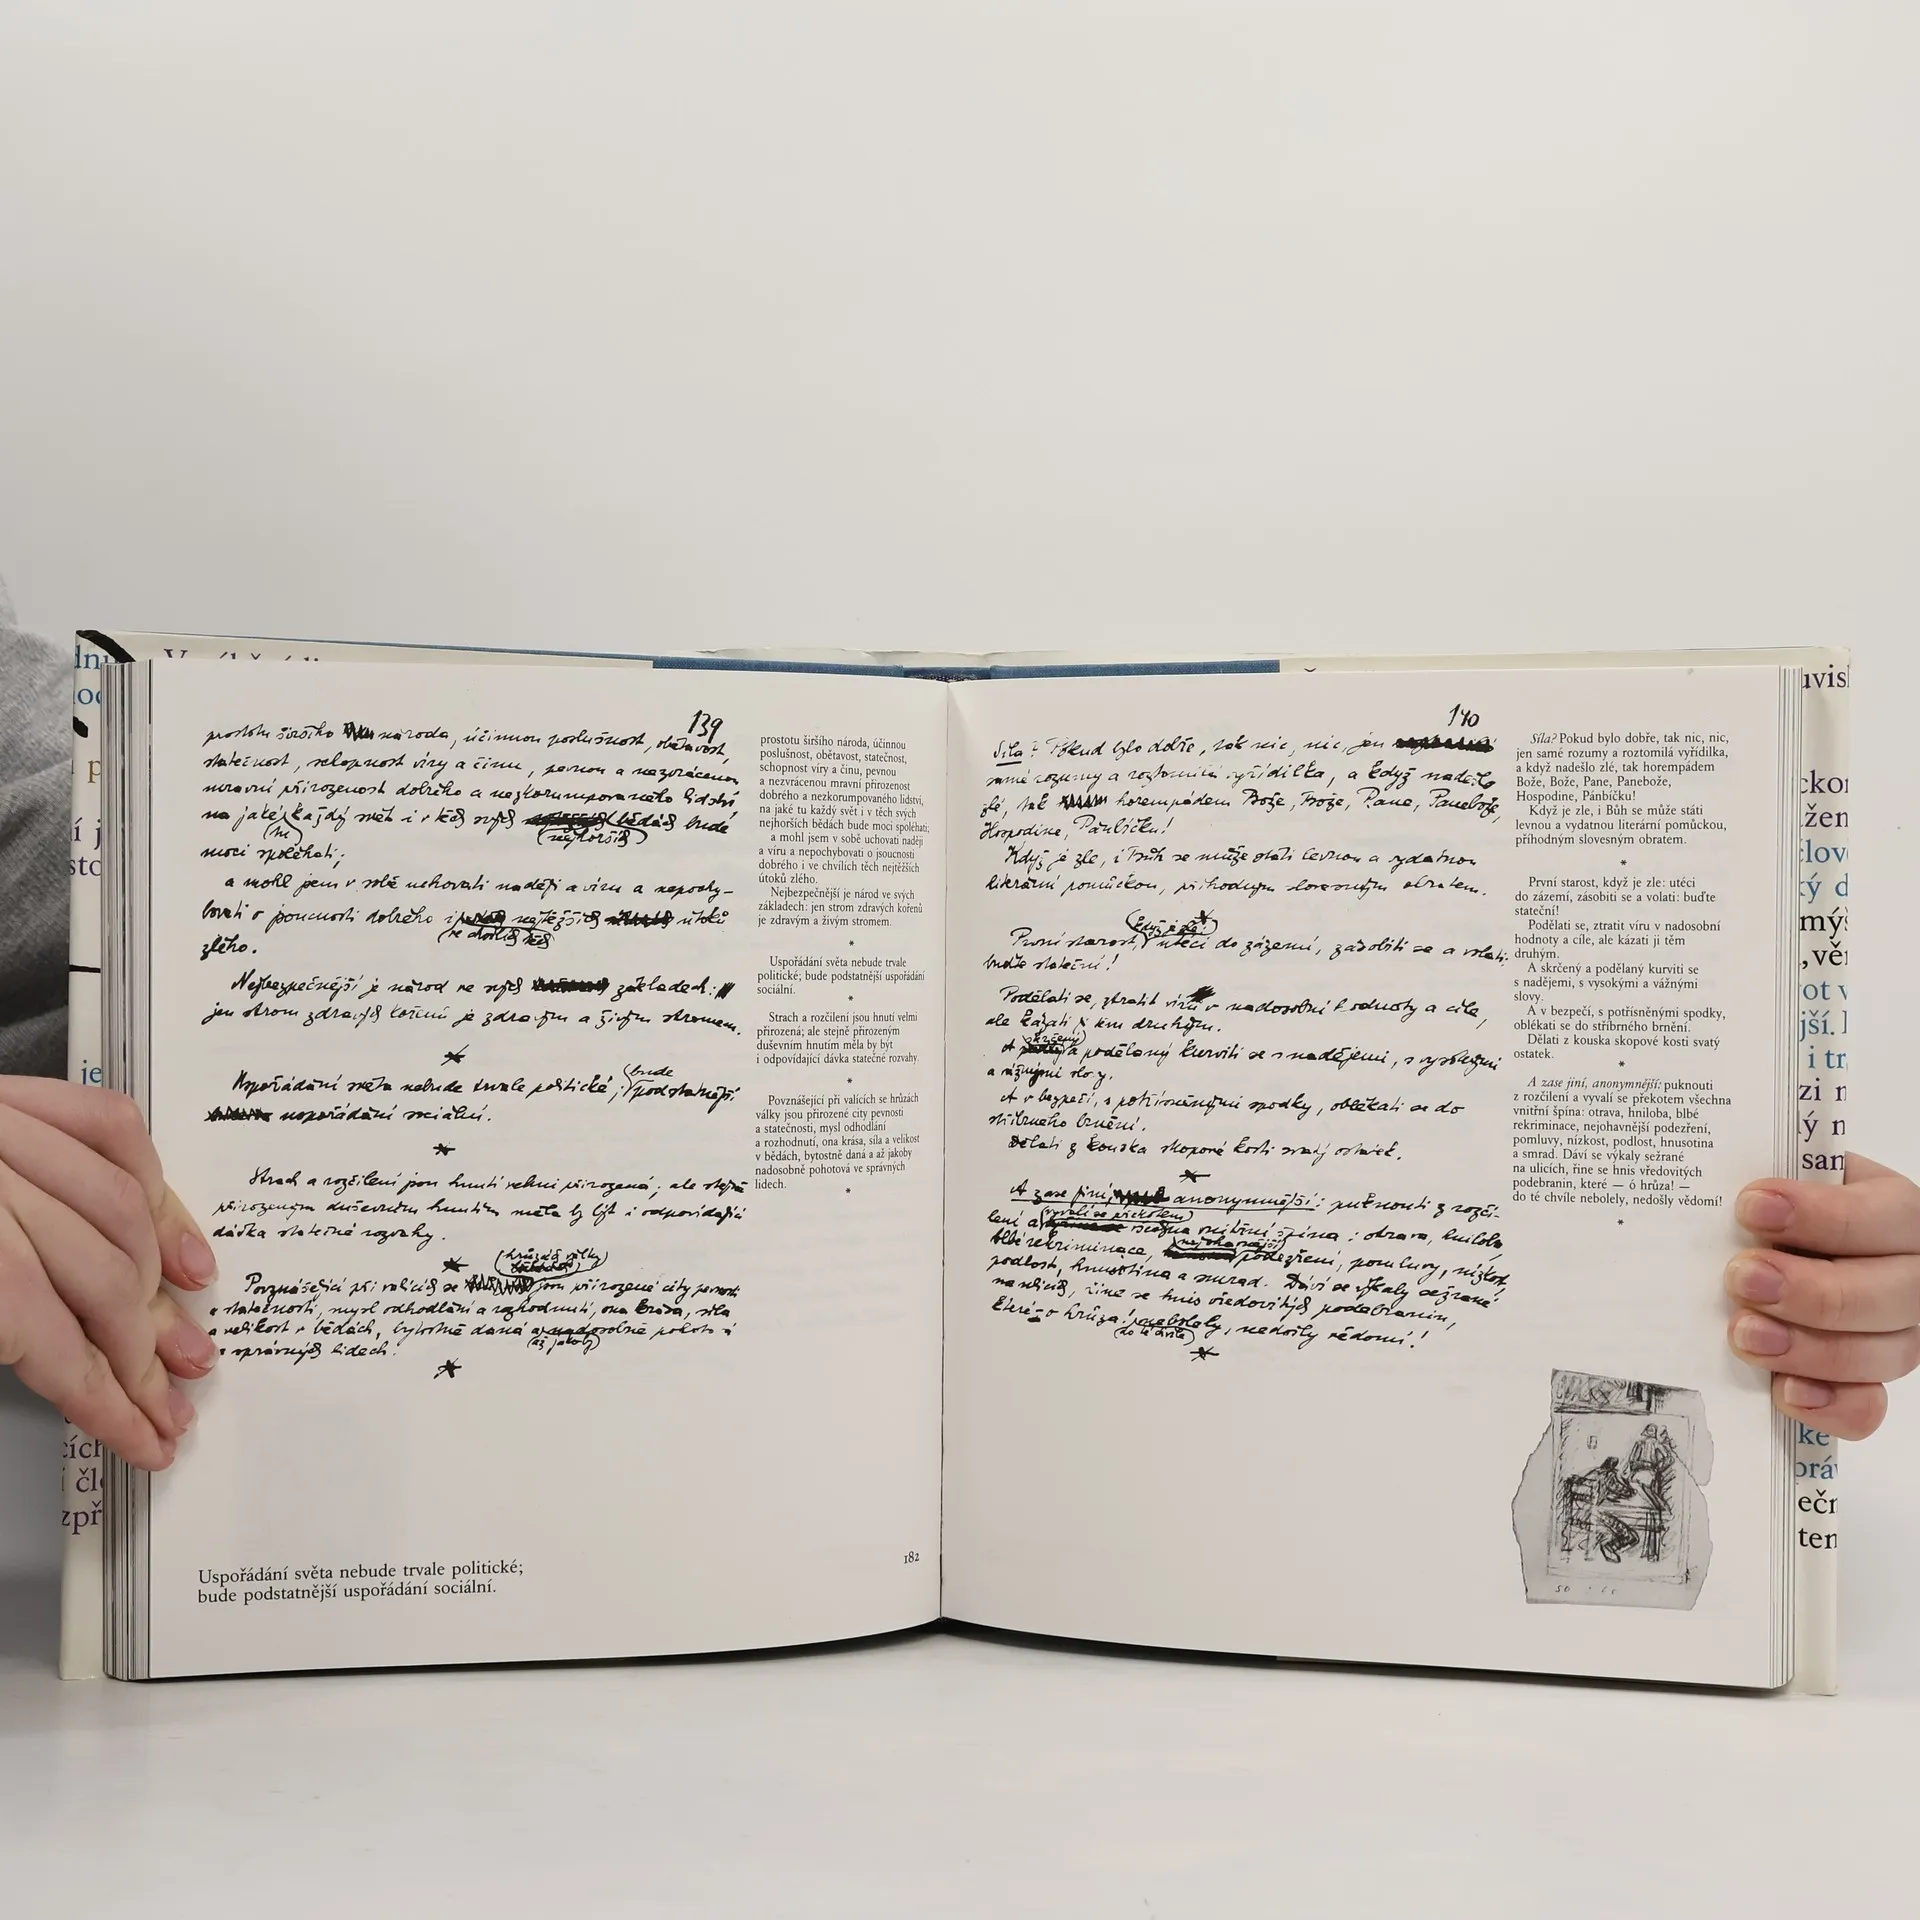 139
prostotu širšího národa, účinnou poslušnost, obětavost,
statečnost, schopnost víry a činu, pevnou a nezvrácenou
mravní přirozenost dobrého a nezkorumpovaného lidství
na jaké každý svět i v těch svých bědách bude
tu
nejhorších
moci spoléhati;
a mohl jsem v sobě uchovati naději a víru a nepochy-
bovati o jsoucnosti dobrého i nejtěžších útoků
ve chvílích těch
zlého.
Nejbezpečnější je národ ve svých základech:
jen strom zdravých kořenů je zdravým a živým stromem.
*
bude
Uspořádání světa nebude trvale politické; podstatnější
uspořádání sociální.
*
Strach a rozčilení jsou hnutí velmi přirozená; ale stejně
přirozeným duševním hnutím měla by být i odpovídající
dávka statečné rozvahy.
*
hrůzách války
Povznášející při valících se jsou přirozené city pevnosti
a statečnosti, mysl odhodlání a rozhodnutí, ona krása, síla
a velikost v bědách, bytostně daná a nadosobně pohotová
až jakoby
v správných lidech.
*
prostotu širšího národa, účinnou
poslušnost, obětavost, statečnost,
schopnost víry a činu, pevnou
a nezvrácenou mravní přirozenost
dobrého a nezkorumpovaného lidství,
na jaké tu každý svět i v těch svých
nejhorších bědách bude moci spoléhati;
a mohl jsem v sobě uchovati naději
a víru a nepochybovati o jsoucnosti
dobrého i ve chvílích těch nejtěžších
útoků zlého.
Nejbezpečnější je národ ve svých
základech: jen strom zdravých kořenů
je zdravým a živým stromem.
*
Uspořádání světa nebude trvale
politické; bude podstatnější uspořádání
sociální.
*
Strach a rozčilení jsou hnutí velmi
přirozená; ale stejně přirozeným
duševním hnutím měla by být
i odpovídající dávka statečné rozvahy.
*
Povznášející při valících se hrůzách
války jsou přirozené city pevnosti
a statečnosti, mysl odhodlání
a rozhodnutí, ona krása, síla a velikost
v bědách, bytostně daná a až jakoby
nadosobně pohotová ve správných
lidech.
*
Uspořádání světa nebude trvale politické;
bude podstatnější uspořádání sociální.
182
140
Síla? Pokud bylo dobře, tak nic, nic, jen
samé rozumy a roztomilá vyřídilka, a když nadešlo
zlé, tak horempádem Bože, Bože, Pane, Panebože,
Hospodine, Pánbíčku!
Když je zle, i Bůh se může státi levnou a vydatnou
literární pomůckou, příhodným slovesným obratem.
*
když je zle:
První starost, utéci do zázemí, zásobiti se a volati:
buďte stateční!
Podělati se, ztratit víru v nadosobní hodnoty a cíle,
ale kázati ji těm druhým.
skrčený
A a podělaný kurviti se s nadějemi, s vysokými
a vážnými slovy.
A v bezpečí, s potřísněnými spodky, oblékati se do
stříbrného brnění.
Dělati z kouska skopové kosti svatý ostatek.
*
A zase jiní, anonymnější: puknouti z rozči-
vyvalí se překotem
lení a všechna vnitřní špína: otrava, hniloba,
nejohavnější
blbé rekriminace, podezření, pomluvy, nízkost,
podlost, hnusotina a smrad. Dáví se výkaly sežrané
na ulicích, řine se hnis vředovitých podebranin,
které – o hrůza! nebolely, nedošly vědomí!
do té chvíle
*
Síla? Pokud bylo dobře, tak nic, nic,
jen samé rozumy a roztomilá vyřídilka,
a když nadešlo zlé, tak horempádem
Bože, Bože, Pane, Panebože,
Hospodine, Pánbíčku!
Když je zle, i Bůh se může státi
levnou a vydatnou literární pomůckou,
příhodným slovesným obratem.
*
První starost, když je zle: utéci
do zázemí, zásobiti se a volati: buďte
stateční!
Podělati se, ztratit víru v nadosobní
hodnoty a cíle, ale kázati ji těm
druhým.
A skrčený a podělaný kurviti se
s nadějemi, s vysokými a vážnými
slovy.
A v bezpečí, s potřísněnými spodky,
oblékati se do stříbrného brnění.
Dělati z kouska skopové kosti svatý
ostatek.
*
A zase jiní, anonymnější: puknouti
z rozčilení a vyvalí se překotem všechna
vnitřní špína: otrava, hniloba, blbé
rekriminace, nejohavnější podezření,
pomluvy, nízkost, podlost, hnusotina
a smrad. Dáví se výkaly sežrané
na ulicích, řine se hnis vředovitých
podebranin, které — ó hrůza! —
do té chvíle nebolely, nedošly vědomí!
*